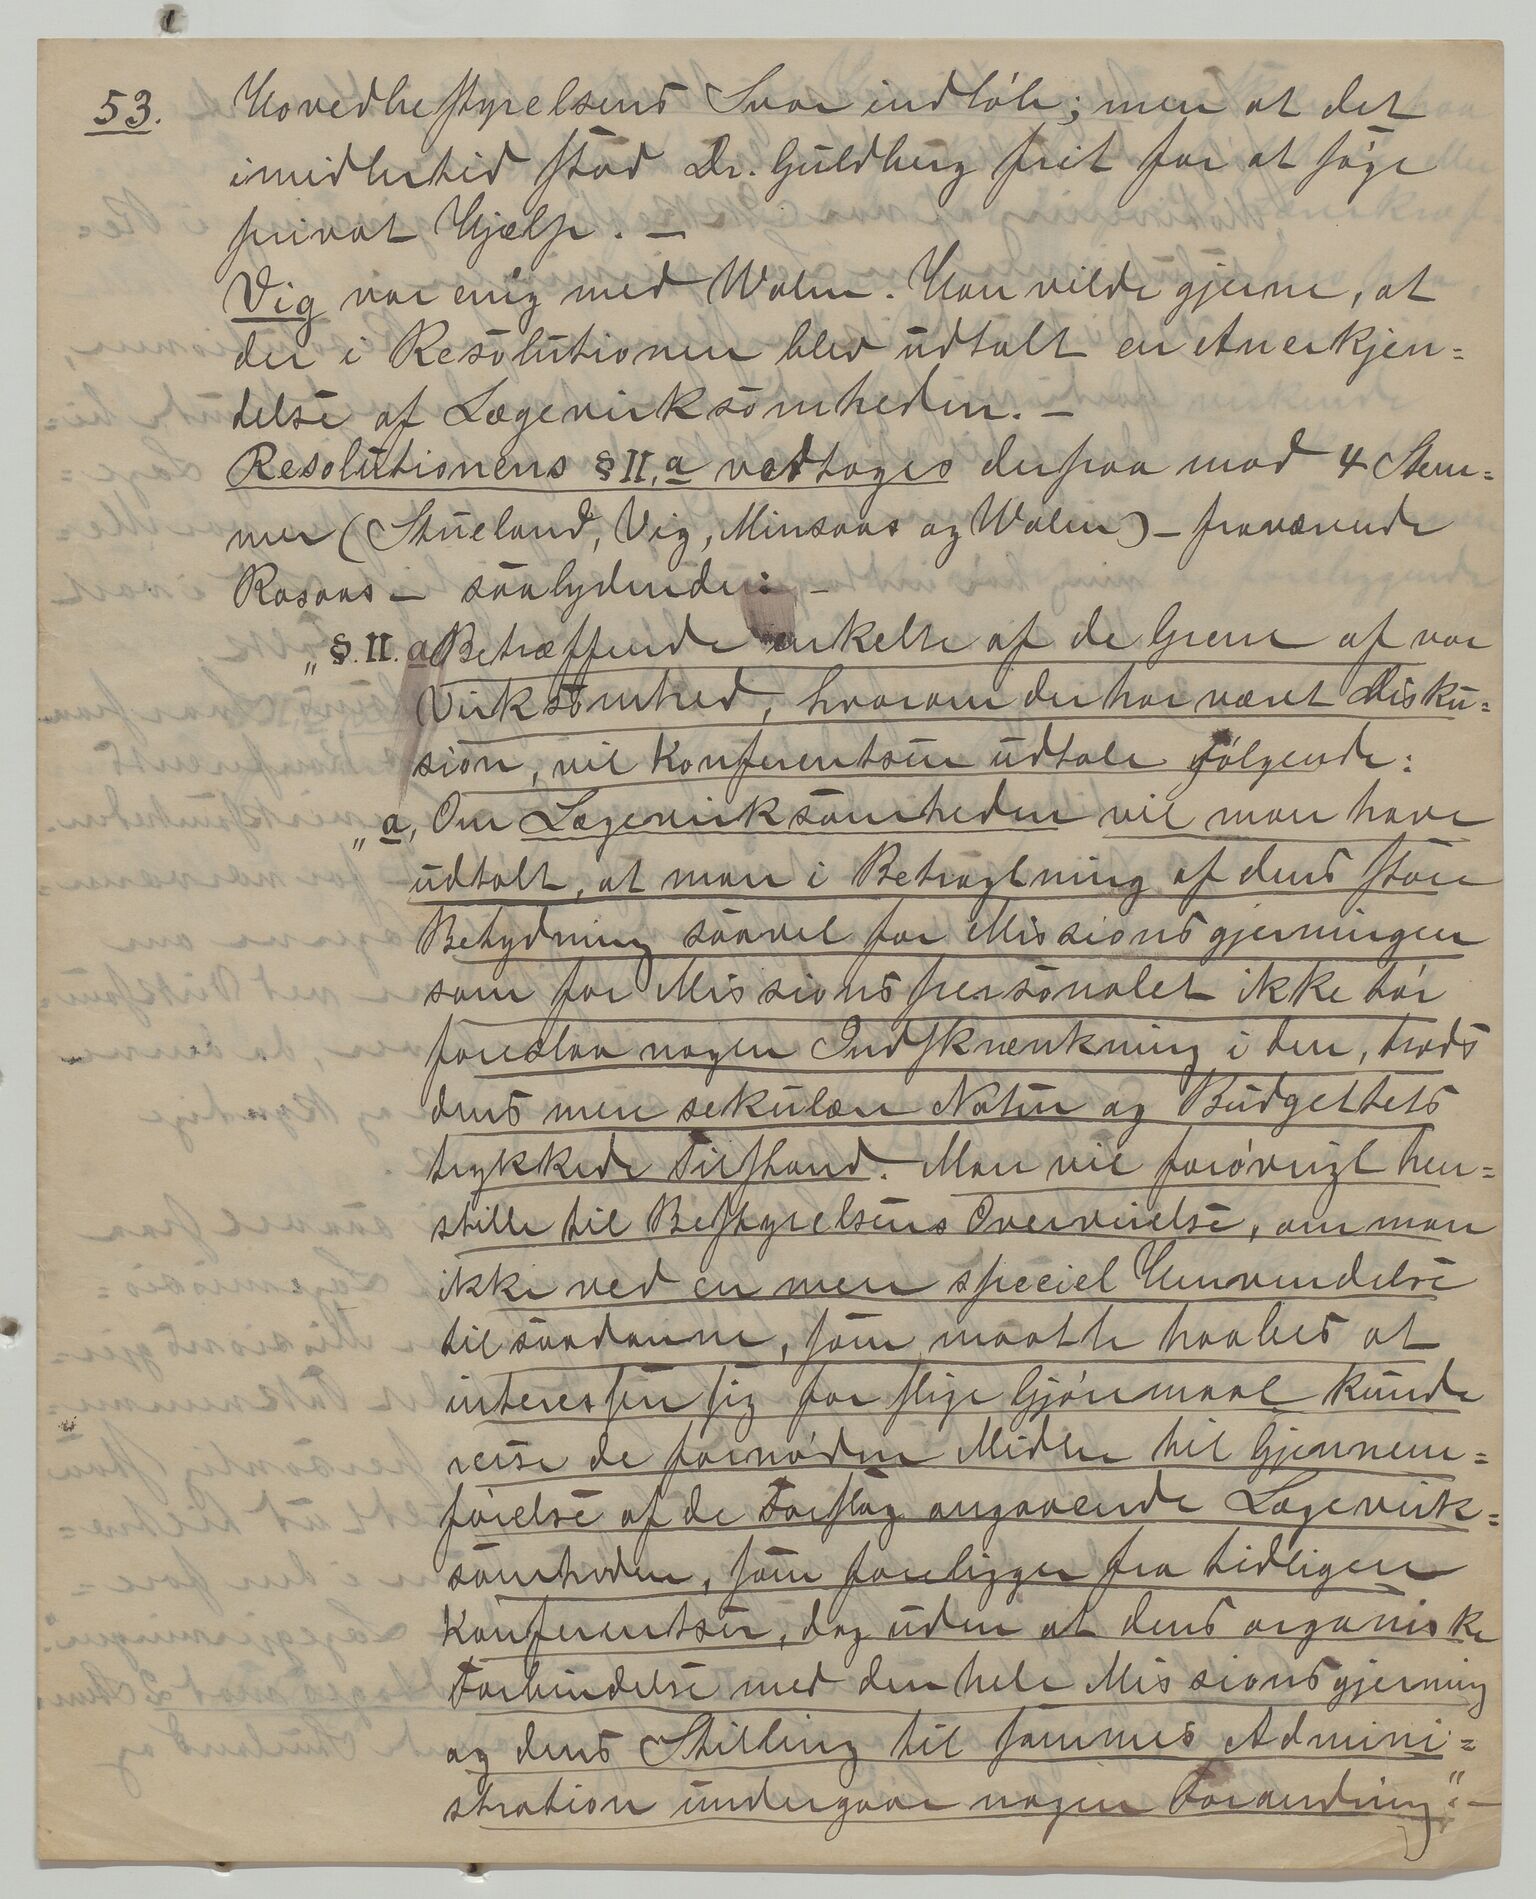 53. Hovedbestyrelsens Svar indløb; men at det
imidlertid stod Dr. Guldberg frit for at søge
privat Hjælp. —
Vig var enig med Walen. Han vilde gjerne, at
der i Resolutionen blev udtalt en Anerkjen=
delse af Lægevirksomheden. —
Resolutionens § II, a vedtoges derpaa mod 4 Stem=
mer (Stueland, Vig, Minsaas og Walen) — fraværende
Rosaas — saalydende: —
„§. II. a Betræffende enkelte af de Grene af vor
Virksomhed, hvorom der har været Disku=
sion, vil Konferentsen udtale følgende:
„a, Om Lægevirksomheden vil man have
udtalt, at man i Betragtning af dens store
Betydning saavel for Missionsgjerningen
som for Missionspersonalet ikke tør
foreslaa nogen Indskrænkning i den, trods
dens mere sekulære Natur og Budgettets
trykkede Tilstand. Man vil forøvrigt hen=
stille til Bestyrelsens Overveielse, om man
ikke ved en mere speciel Henvendelse
til saadanne, som maatte haabes at
interessere sig for slige Gjøremaal kunde
reise de fornødne Midler til Gjennem=
førelse af de Forslag angaaende Lægevirk=
somheden, som foreligger fra tidligere
Konferentser, dog uden at dens organiske
Forbindelse med den hele Missionsgjerning
og dens Stilling til sammes Admini=
stration undergaar nogen Forandring". —